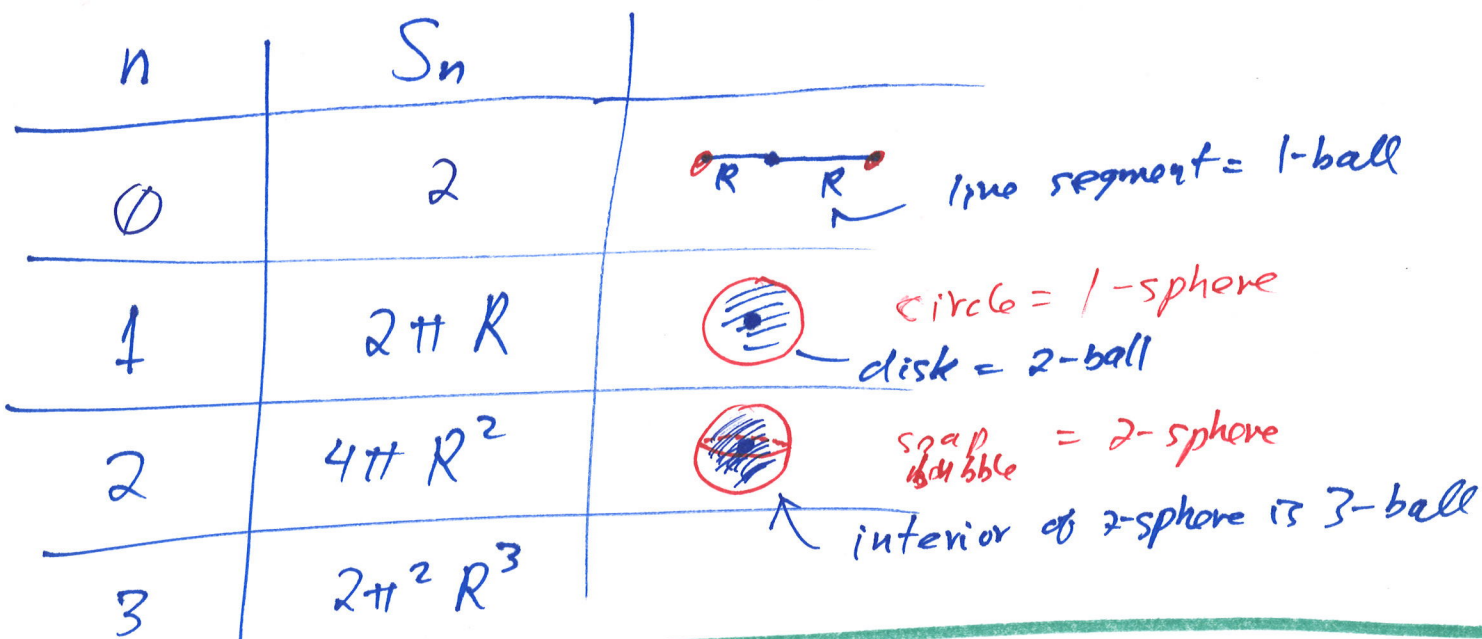 n Sn
0 2 R R line segment = 1-ball
1 2π R circle = 1-sphere
disk = 2-ball
2 4π R² soap bubble = 2-sphere
interior of 2-sphere is 3-ball
3 2π² R³